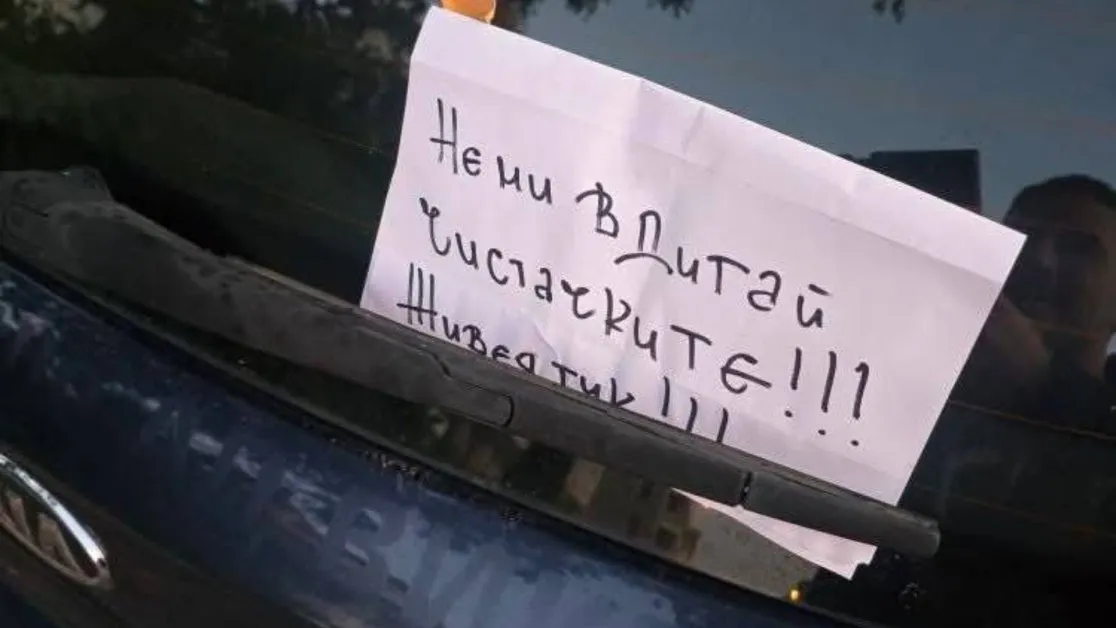 Не ми вдигай
чистачките!!!
Живея тук!!!